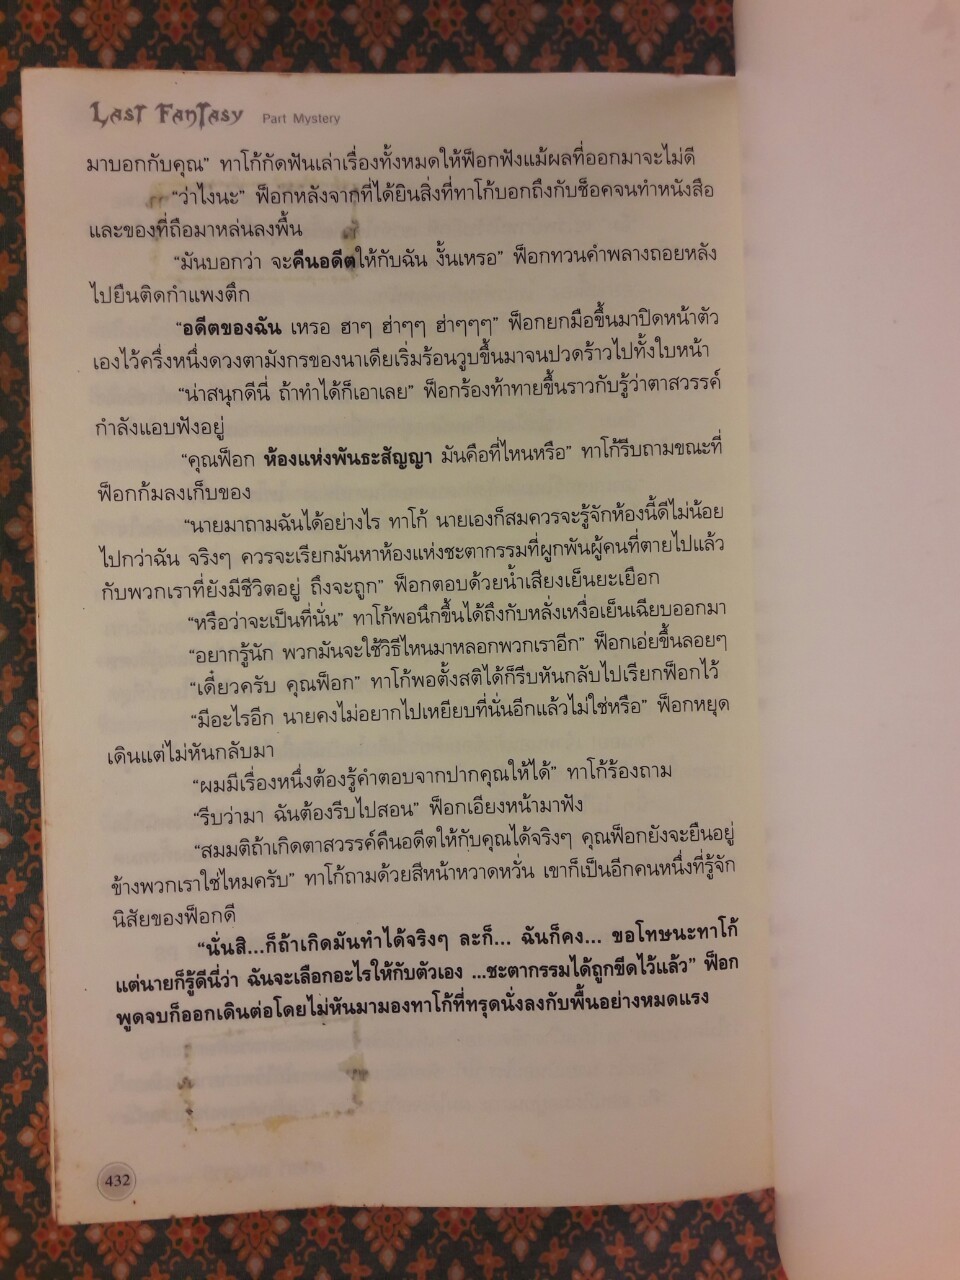 Last Fantasy Part Mystery
มาบอกกับคุณ” ทาโก้กัดฟันเล่าเรื่องทั้งหมดให้ฟ็อกฟังแม้ผลที่ออกมาจะไม่ดี
“ว่าไงนะ” ฟ็อกหลังจากที่ได้ยินสิ่งที่ทาโก้บอกถึงกับช็อคจนทำหนังสือ
และของที่ถือมาหล่นลงพื้น
“มันบอกว่า จะคืนอดีตให้กับฉัน งั้นเหรอ” ฟ็อกทวนคำพลางถอยหลัง
ไปยืนติดกำแพงตึก
“อดีตของฉัน เหรอ ฮาๆ ฮ่าๆๆ ฮ่าๆๆๆ” ฟ็อกยกมือขึ้นมาปิดหน้าตัว
เองไว้ครึ่งหนึ่งดวงตามังกรของนาเดียเริ่มร้อนวูบขึ้นมาจนปวดร้าวไปทั้งใบหน้า
“น่าสนุกดีนี่ ถ้าทำได้ก็เอาเลย” ฟ็อกร้องท้าทายขึ้นราวกับรู้ว่าตาสวรรค์
กำลังแอบฟังอยู่
“คุณฟ็อก ห้องแห่งพันธะสัญญา มันคือที่ไหนหรือ” ทาโก้รีบถามขณะที่
ฟ็อกก้มลงเก็บของ
“นายมาถามฉันได้อย่างไร ทาโก้ นายเองก็สมควรจะรู้จักห้องนี้ดีไม่น้อย
ไปกว่าฉัน จริงๆ ควรจะเรียกมันหาห้องแห่งชะตากรรมที่ผูกพันผู้คนที่ตายไปแล้ว
กับพวกเราที่ยังมีชีวิตอยู่ ถึงจะถูก” ฟ็อกตอบด้วยน้ำเสียงเย็นยะเยือก
“หรือว่าจะเป็นที่นั่น” ทาโก้พอนึกขึ้นได้ถึงกับหลั่งเหงื่อเย็นเฉียบออกมา
“อยากรู้นัก พวกมันจะใช้วิธีไหนมาหลอกพวกเราอีก” ฟ็อกเอ่ยขึ้นลอยๆ
“เดี๋ยวครับ คุณฟ็อก” ทาโก้พอตั้งสติได้ก็รีบหันกลับไปเรียกฟ็อกไว้
“มีอะไรอีก นายคงไม่อยากไปเหยียบที่นั่นอีกแล้วไม่ใช่หรือ” ฟ็อกหยุด
เดินแต่ไม่หันกลับมา
“ผมมีเรื่องหนึ่งต้องรู้คำตอบจากปากคุณให้ได้” ทาโก้ร้องถาม
“รีบว่ามา ฉันต้องรีบไปสอน” ฟ็อกเอียงหน้ามาฟัง
“สมมติถ้าเกิดตาสวรรค์คืนอดีตให้กับคุณได้จริงๆ คุณฟ็อกยังจะยืนอยู่
ข้างพวกเราใช่ไหมครับ” ทาโก้ถามด้วยสีหน้าหวาดหวั่น เขาก็เป็นอีกคนหนึ่งที่รู้จัก
นิสัยของฟ็อกดี
“นั่นสิ...ก็ถ้าเกิดมันทำได้จริงๆ ละก็... ฉันก็คง... ขอโทษนะทาโก้
แต่นายก็รู้ดีนี่ว่า ฉันจะเลือกอะไรให้กับตัวเอง ...ชะตากรรมได้ถูกขีดไว้แล้ว” ฟ็อก
พูดจบก็ออกเดินต่อโดยไม่หันมามองทาโก้ที่ทรุดนั่งลงกับพื้นอย่างหมดแรง
432